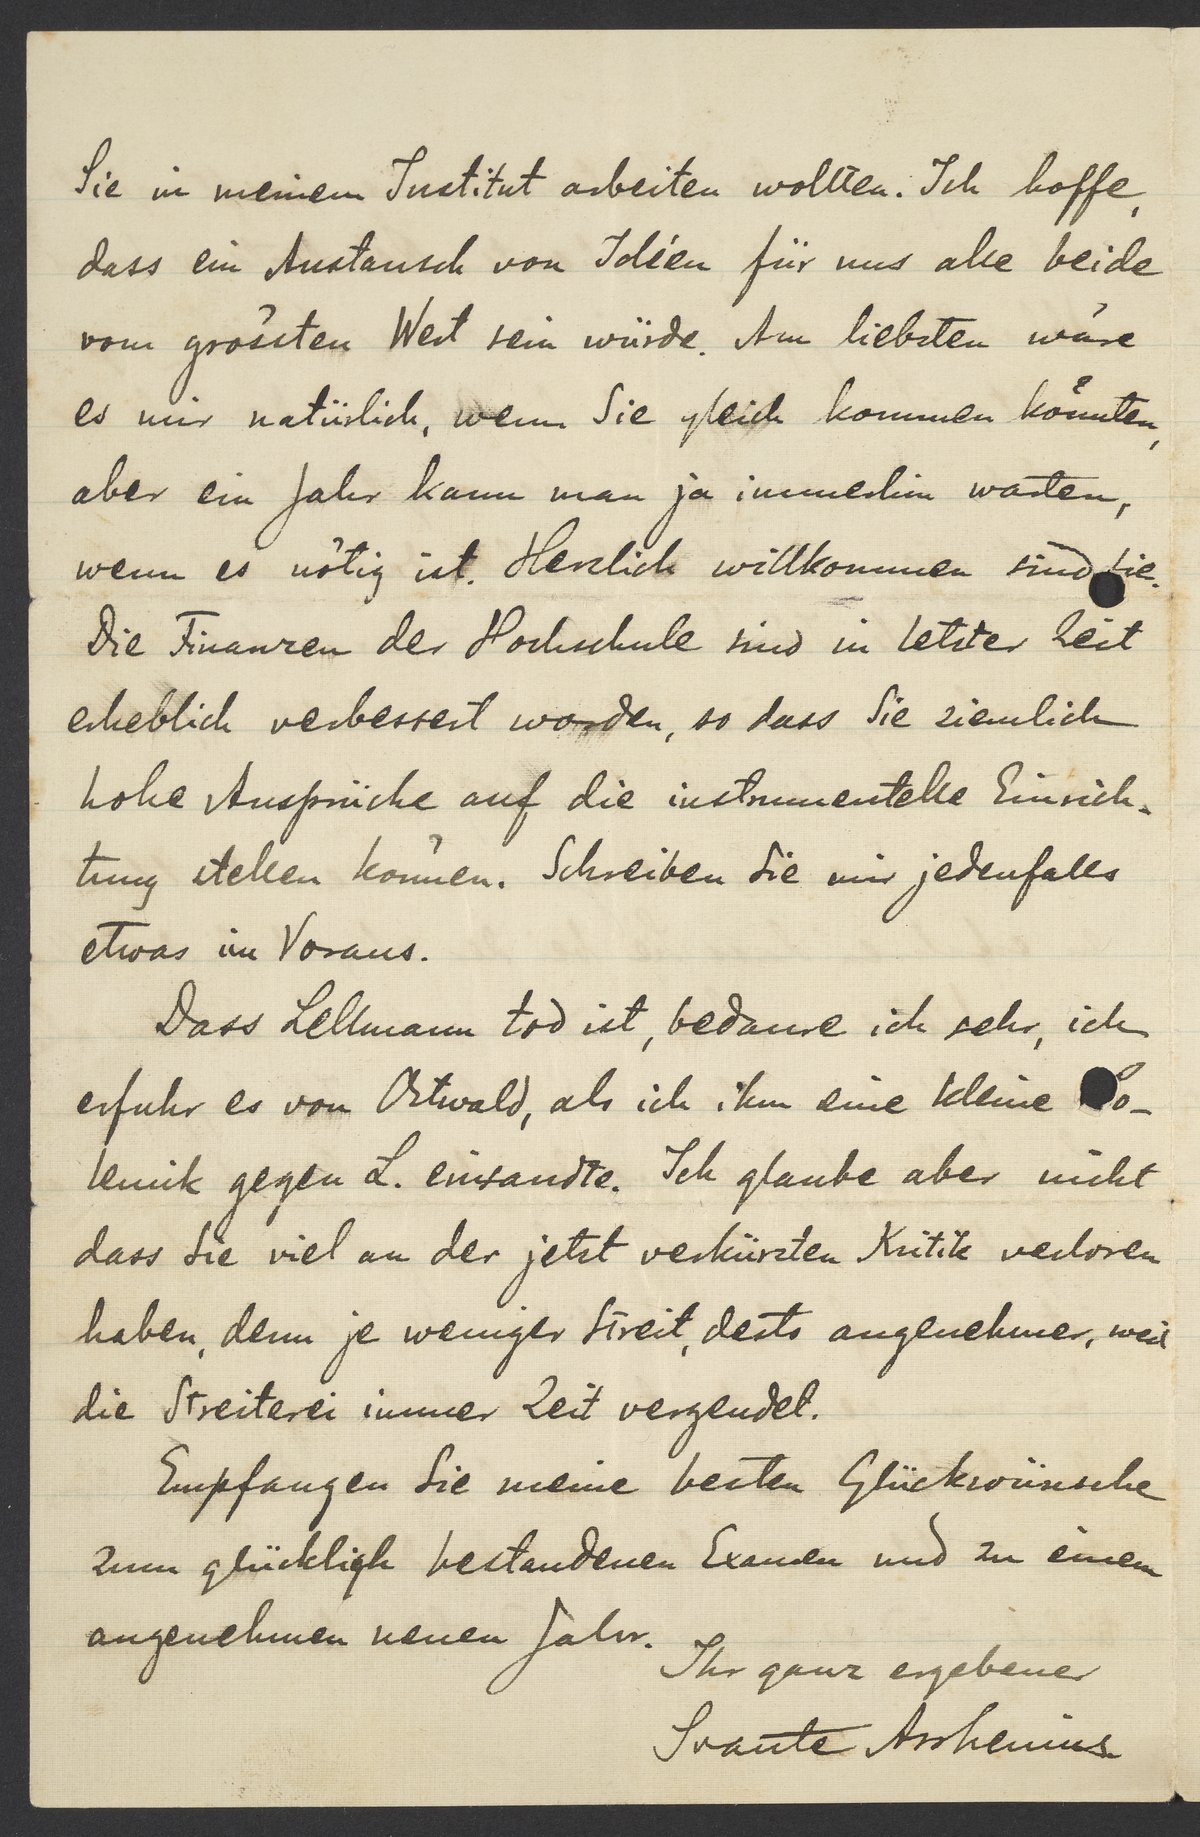 Sie in meinem Institut arbeiten wollten. Ich hoffe,
dass ein Austausch von Idéen für uns alle beide
vom grössten Wert sein würde. Am liebsten wäre
es mir natürlich, wenn Sie gleich kommen könnten,
aber ein Jahr kann man ja immerhin warten,
wenn es nötig ist. Herzlich willkommen sind Sie.
Die Finanzen der Hochschule sind in letzter Zeit
erheblich verbessert worden, so dass Sie ziemlich
hohe Ansprüche auf die instrumentelle Einrich-
tung stellen können. Schreiben Sie mir jedenfalls
etwas im Voraus.
Dass Lellmann tod ist, bedaure ich sehr, ich
erfuhr es von Ostwald, als ich ihm eine kleine Po-
lemik gegen L. einsandte. Ich glaube aber nicht
dass Sie viel an der jetzt verkürzten Kritik verloren
haben, denn je weniger Streit, desto angenehmer, weil
die Streiterei immer Zeit vergeudet.
Empfangen Sie meine besten Glückwünsche
zum glücklich bestandenen Examen und zu einem
angenehmen neuen Jahr.
Ihr ganz ergebener
Svante Arrhenius